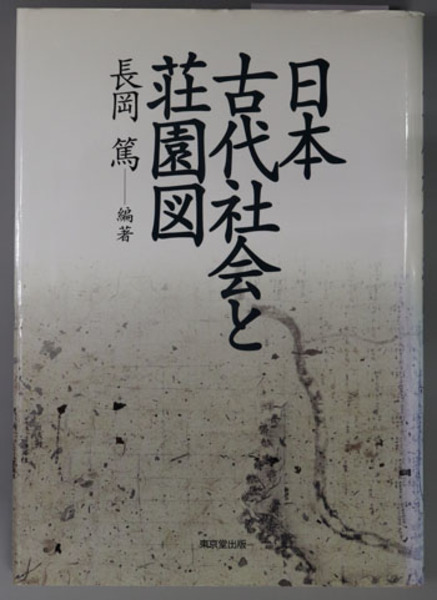 日本
古代社会と
荘園図
長岡 篤──編著
東京堂出版